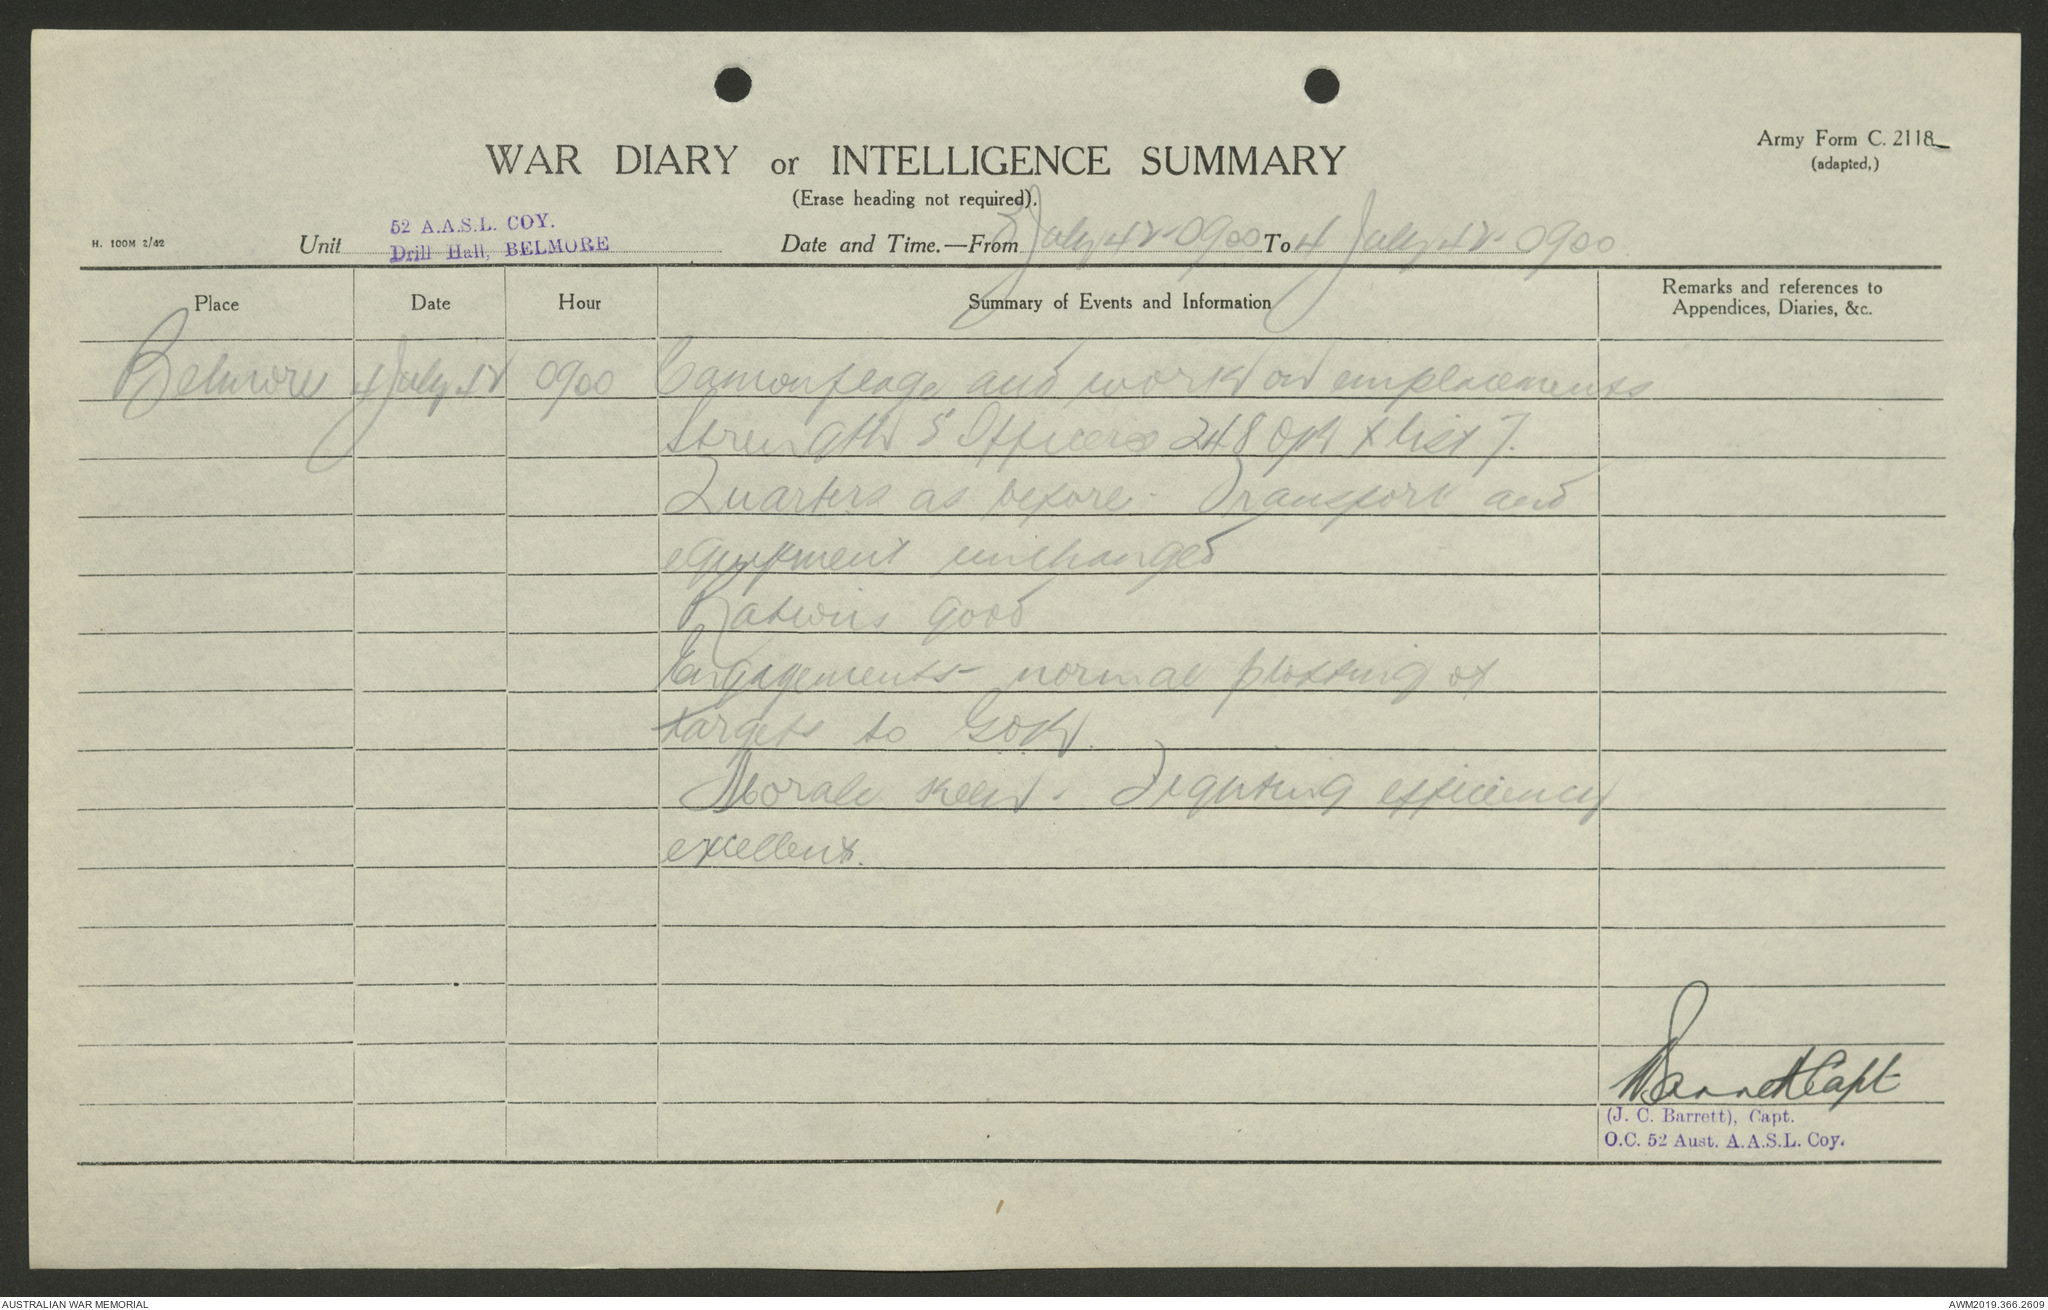 Army Form C. 2118
(adapted,)
WAR DIARY or INTELLIGENCE SUMMARY
(Erase heading not required).
H. 100M 2/42
Unit 52 A.A.S.L. COY.
Drill Hall, BELMORE
Date and Time.—From 3 July 42 0900 To 4 July 42 0900
Place Date Hour Summary of Events and Information Remarks and references to
Appendices, Diaries, &c.
Belmore 4 July 42 0900 Camouflage and work on emplacements
Strength 5 Officers 248 O/R X list 7.
Quarters as before. Transport and
equipment unchanged
Rations good
Engagements - normal plotting of
targets to GOR.
Morale keen. Fighting efficiency
excellent.
Barrett Capt
(J. C. Barrett), Capt.
O.C. 52 Aust. A.A.S.L. Coy.
AUSTRALIAN WAR MEMORIAL
AWM2019.366.2609